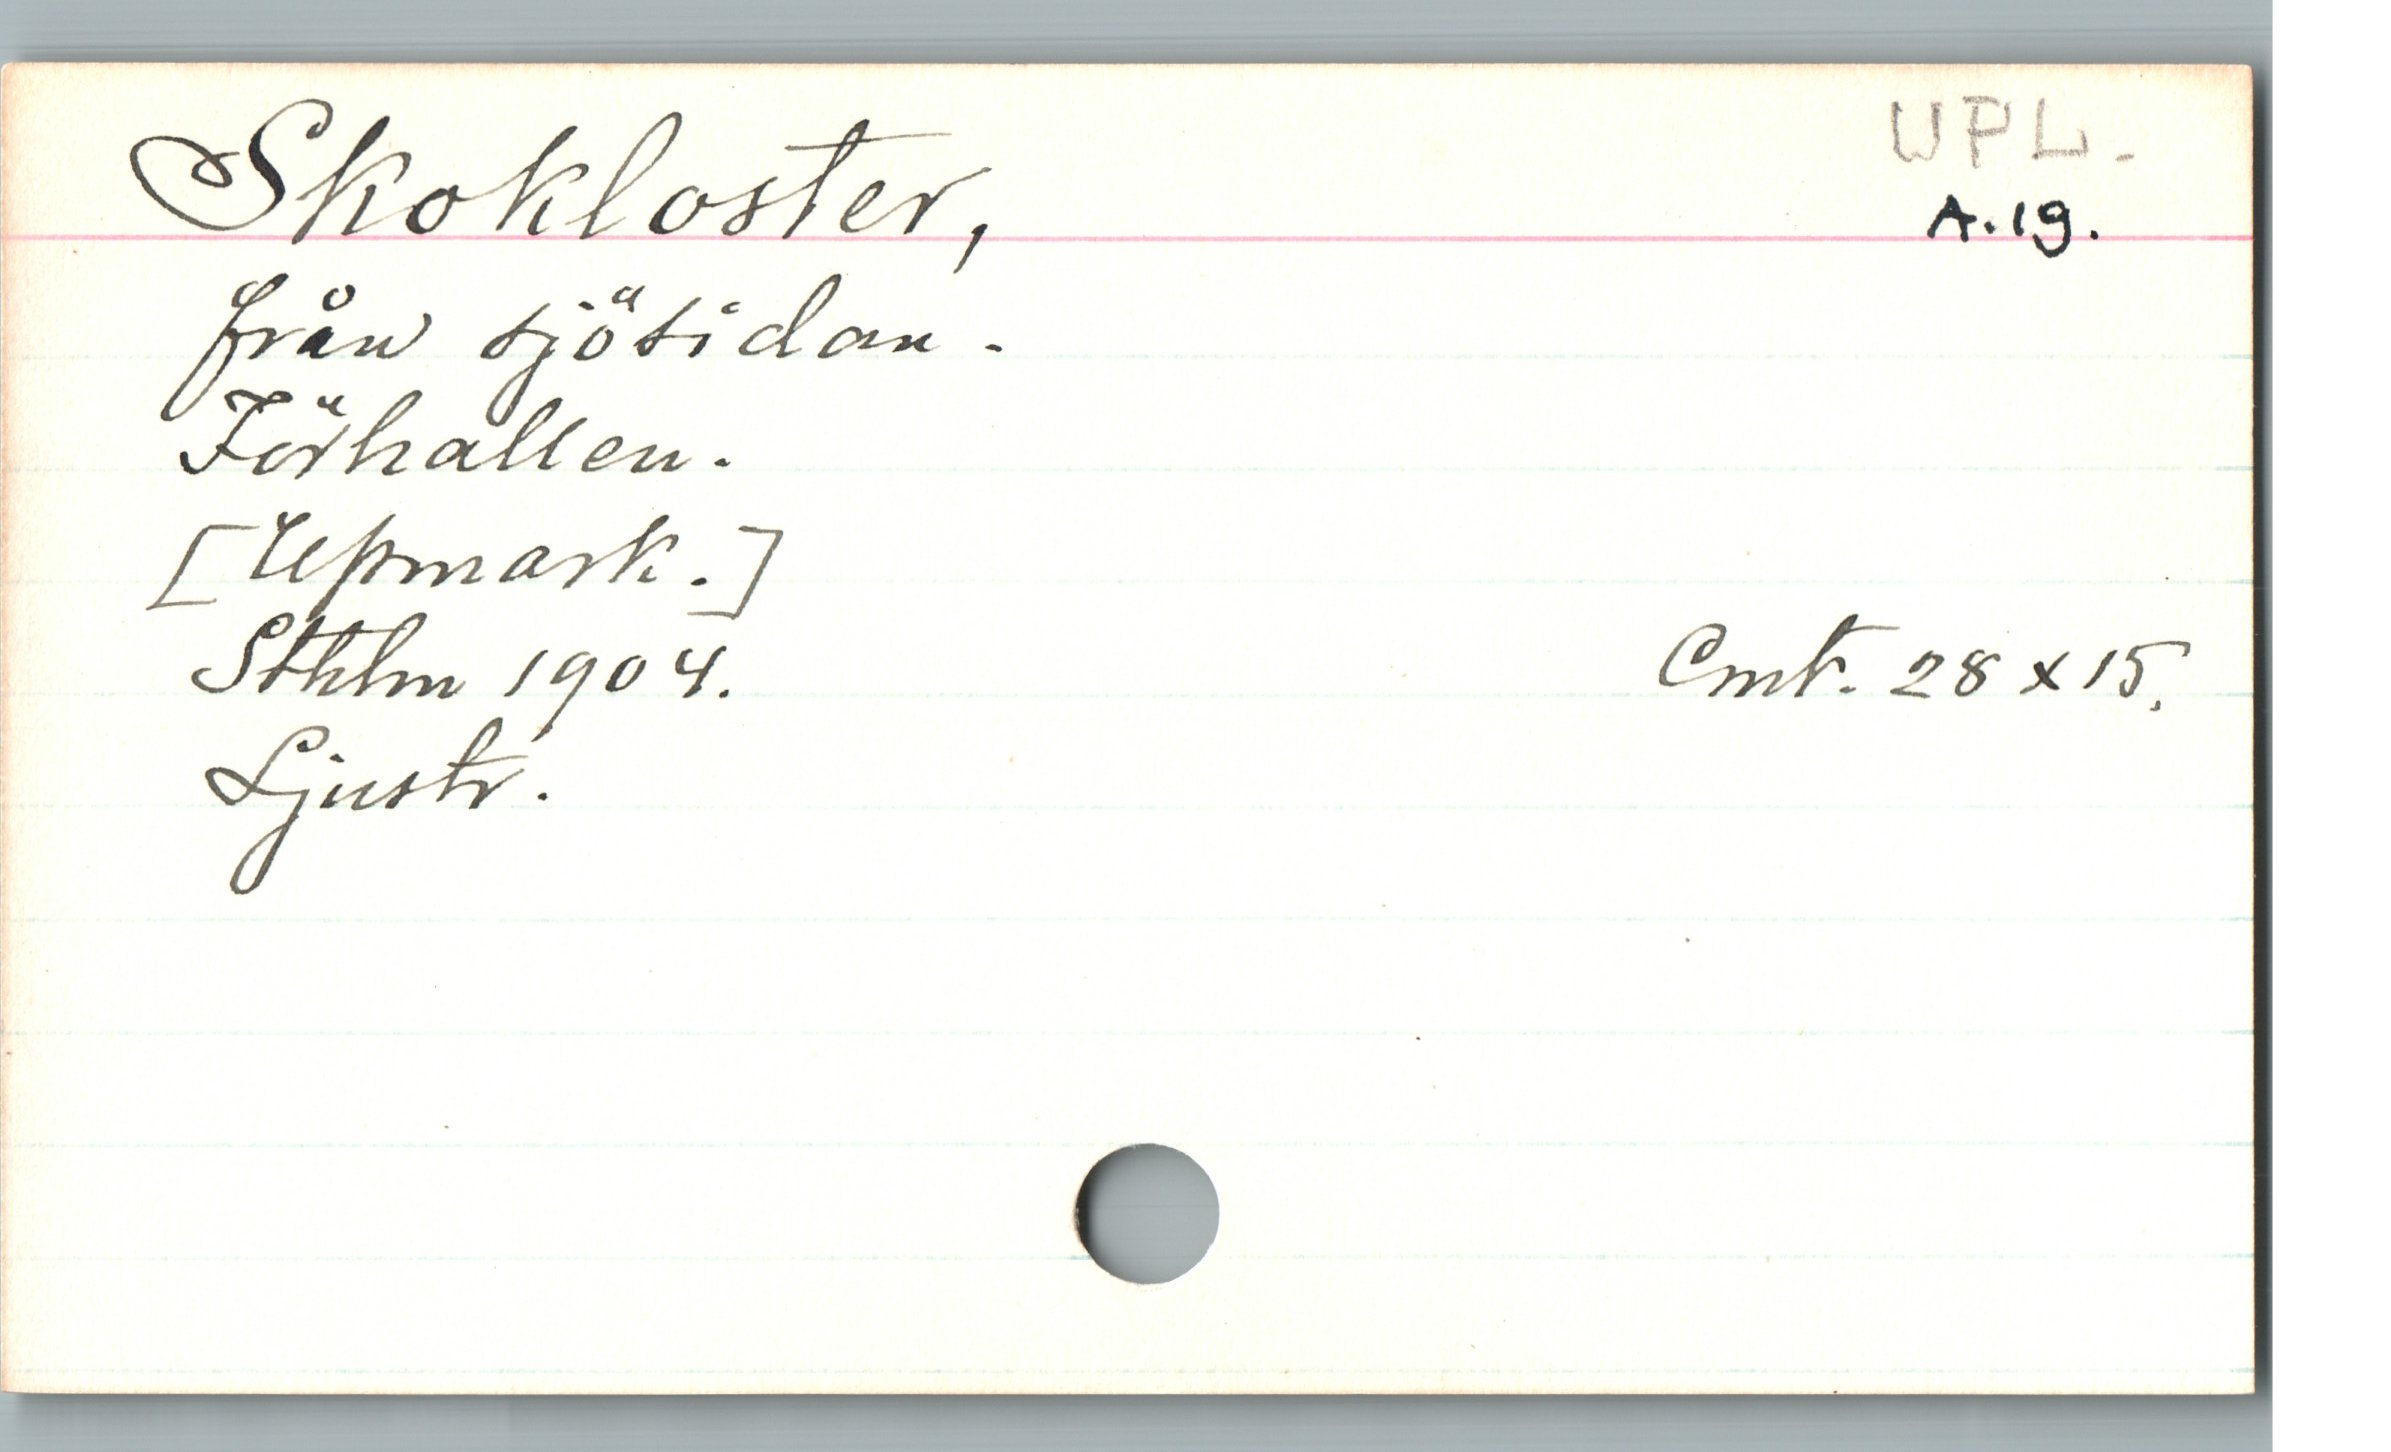 Skokloster,
UPL.
A.19.
från sjösidan.
Förhallen.
[Upmark.]
Sthlm 1904.
Cmt. 28 x 15.
Ljustr.